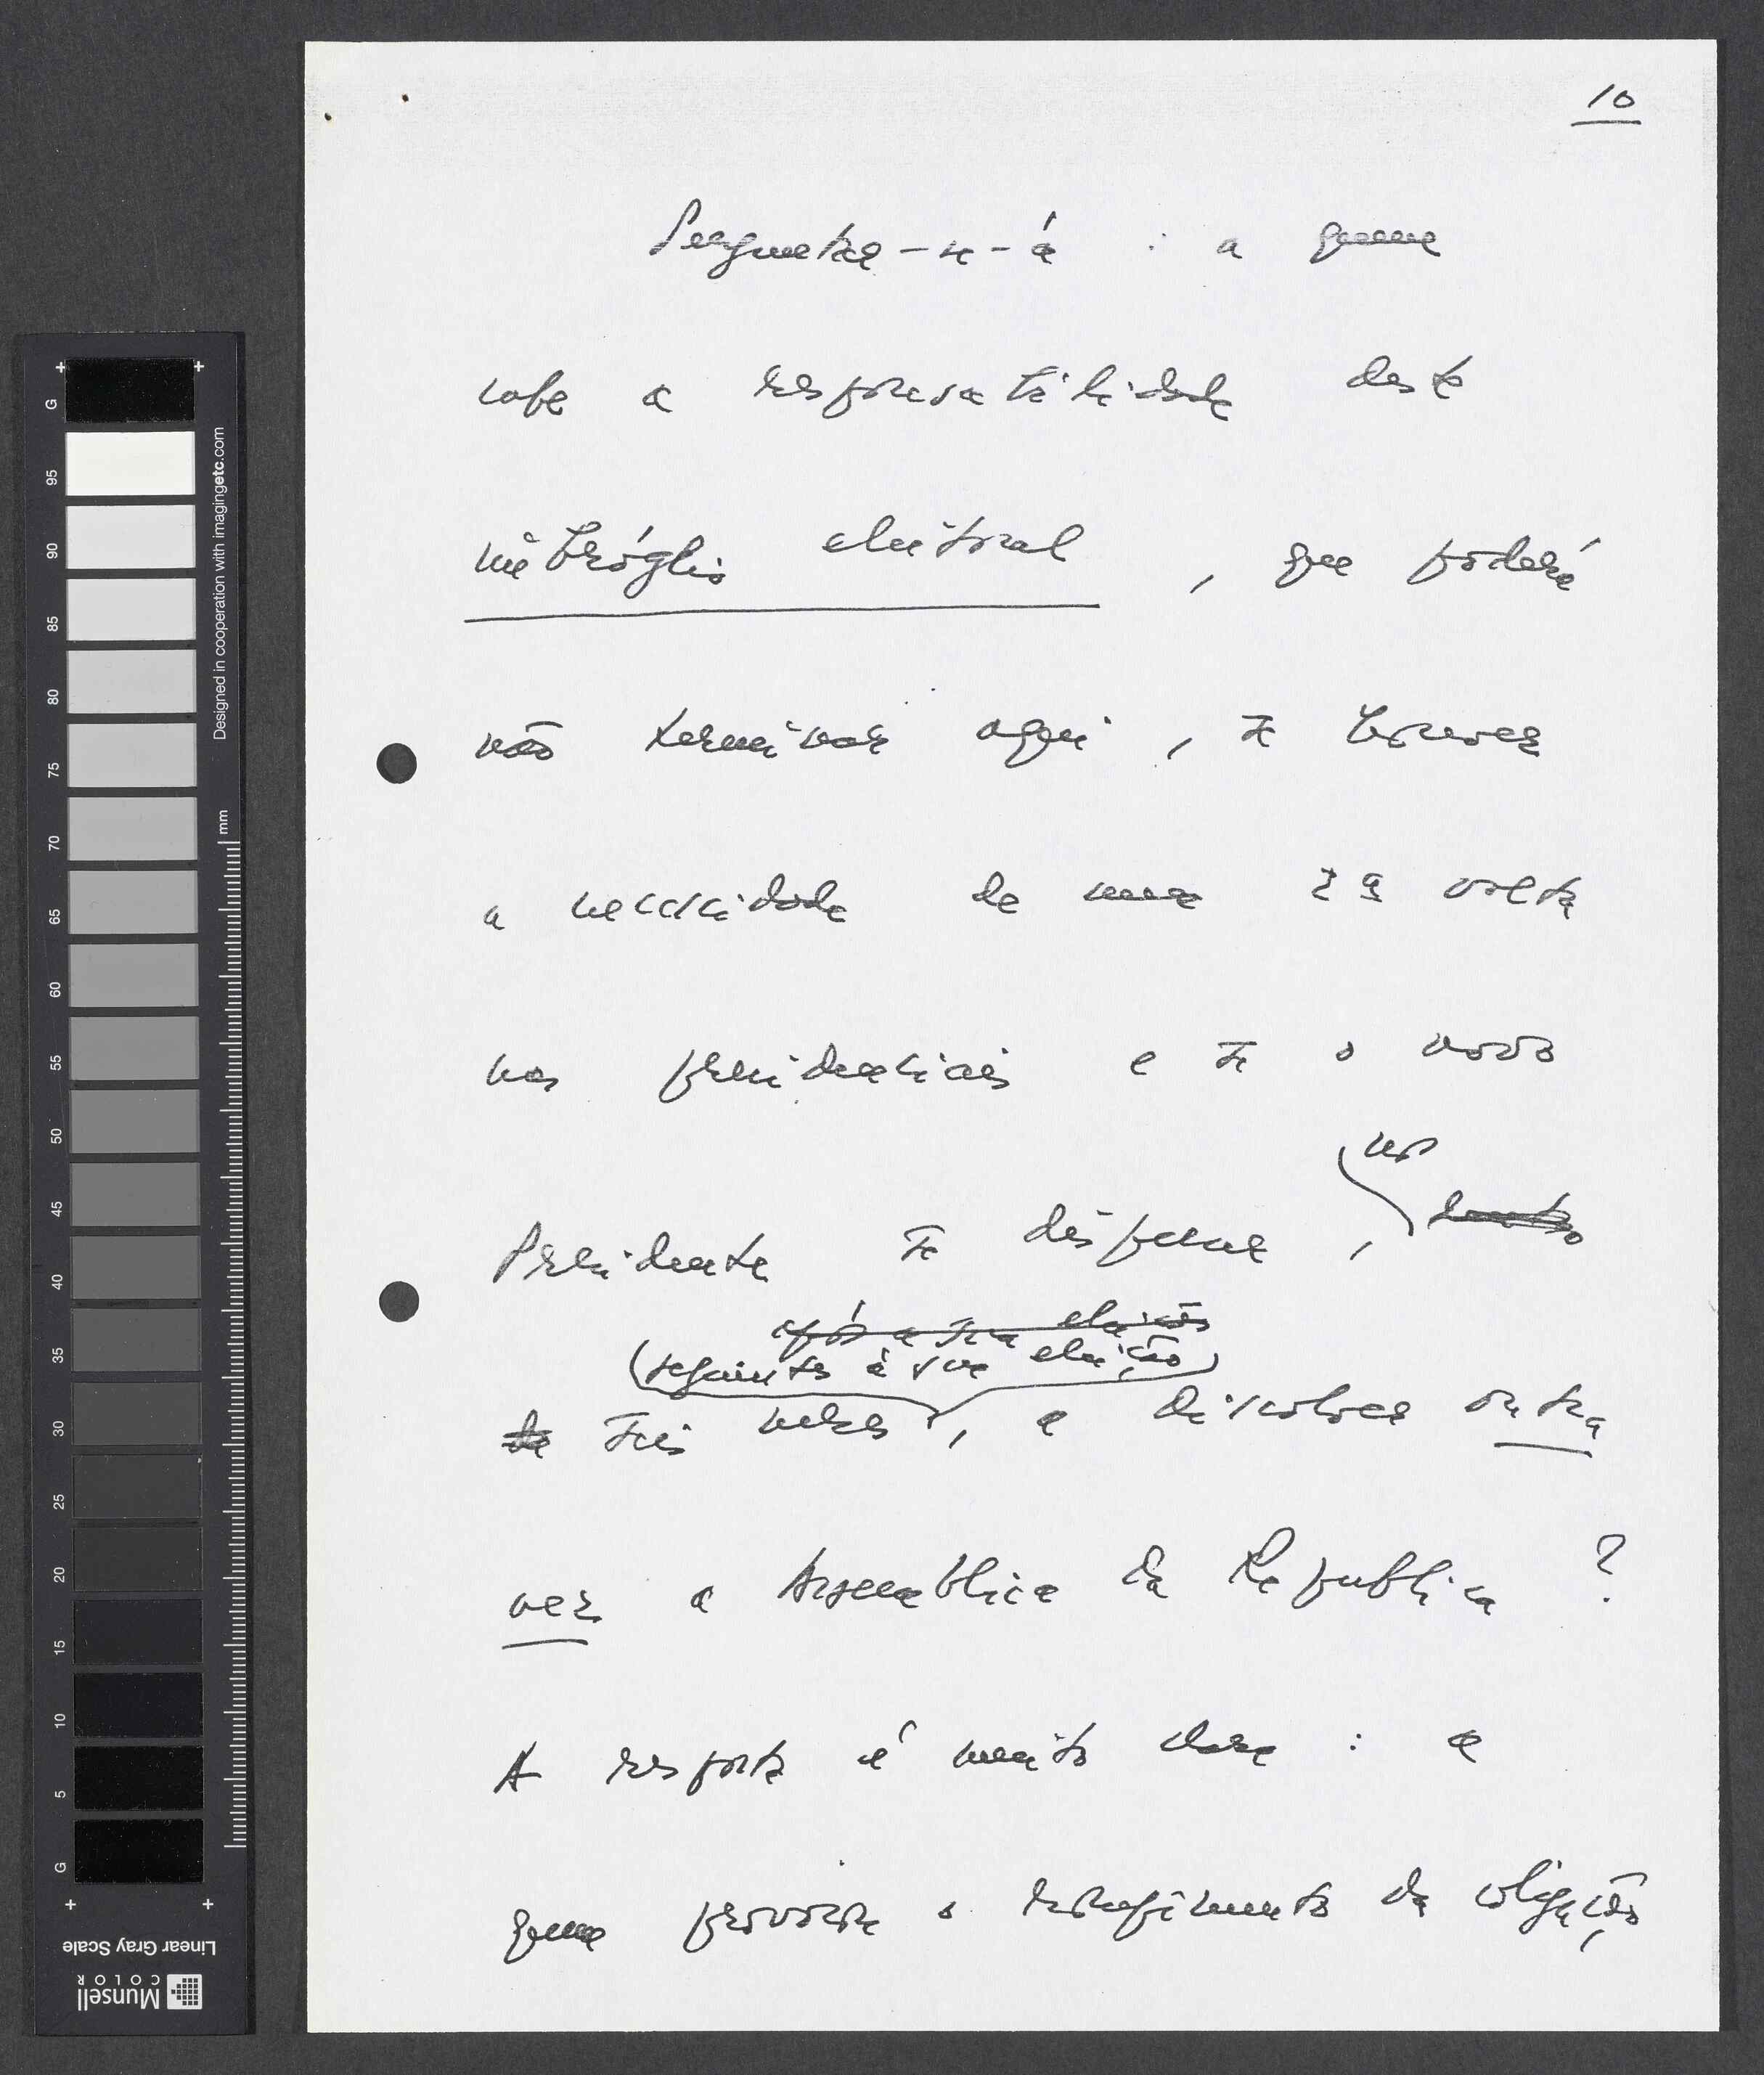 10
Perguntar-se-á : a quem
cabe a responsabilidade deste
imbróglio eleitoral , que poderá
não terminar aqui , se houver
a necessidade de uma 2ª volta
nas presidenciais e se o novo
nos
Presidente se dispuser ,
após a sua eleição
(seguintes à sua eleição)
de seis meses , a dissolver outra
vez a Assembleia da Republica ?
A resposta é muito clara : a
quem provocou o rompimento da coligação
G
95
90
85
80
75
70
65
60
55
50
45
40
35
30
25
20
15
10
5
G
Designed in cooperation with imagingetc.com
mm
Linear Gray Scale
Munsell
COLOR